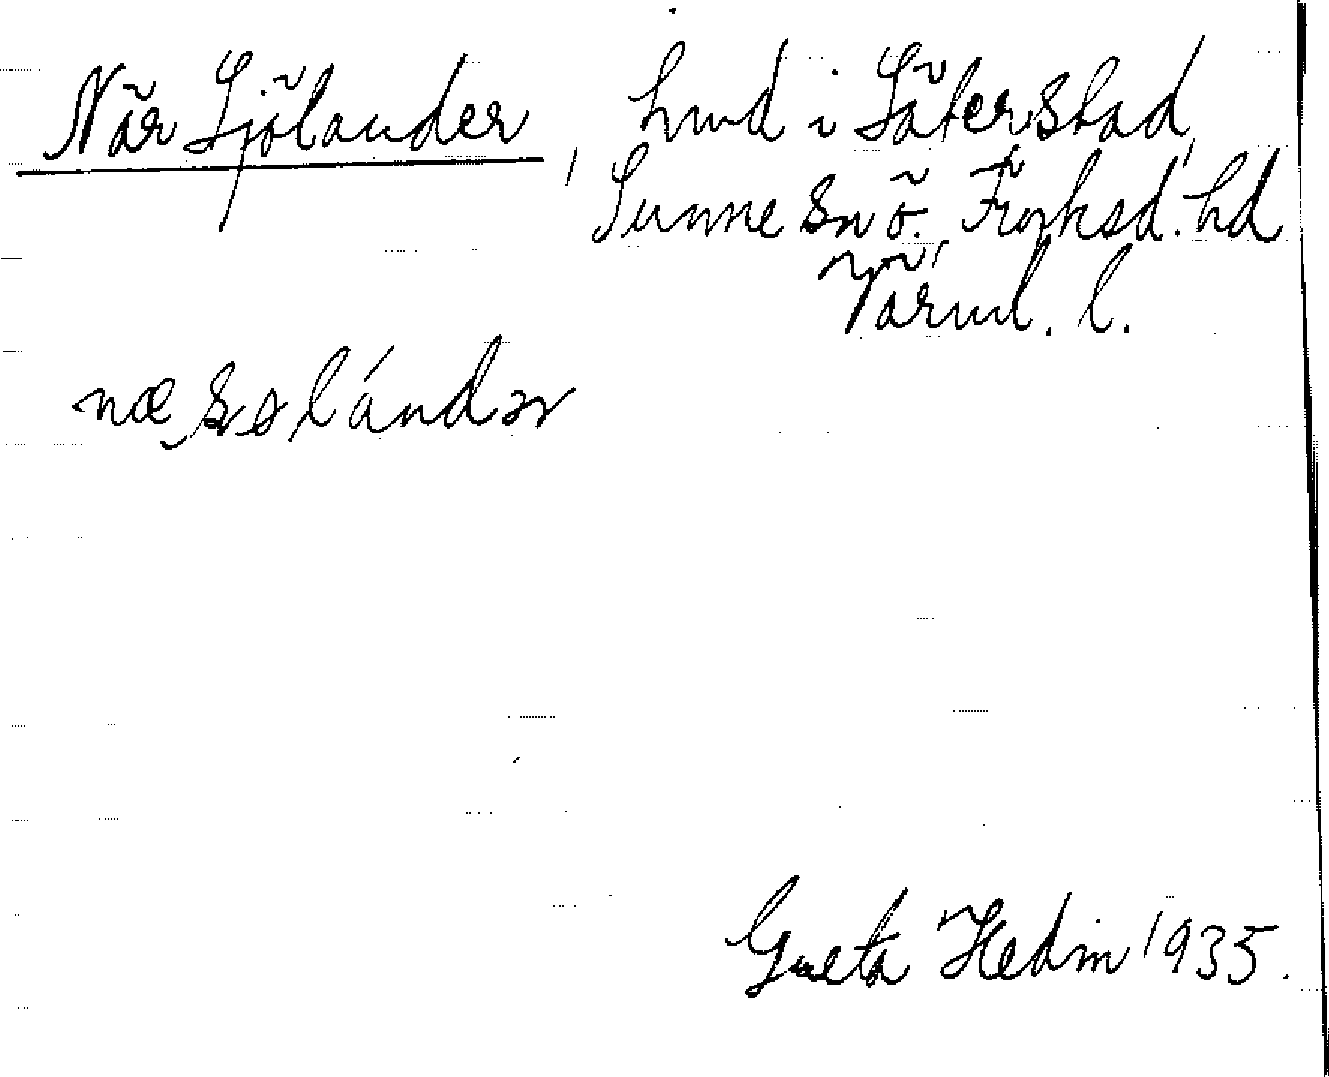 När Sjölander, hund i Säterstad,
Sunne sn ö. Fryksd. hd
Värml. l.
Greta Hedin 1935.